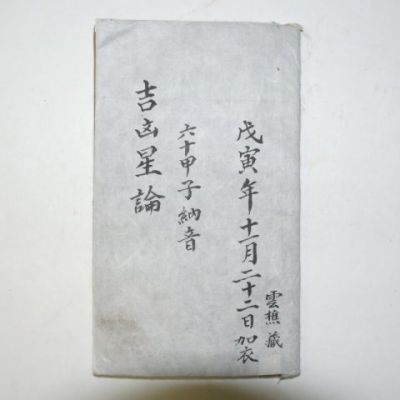 戊寅年十一月二十二日加衣
雲樵藏
六十甲子納音
吉凶星論